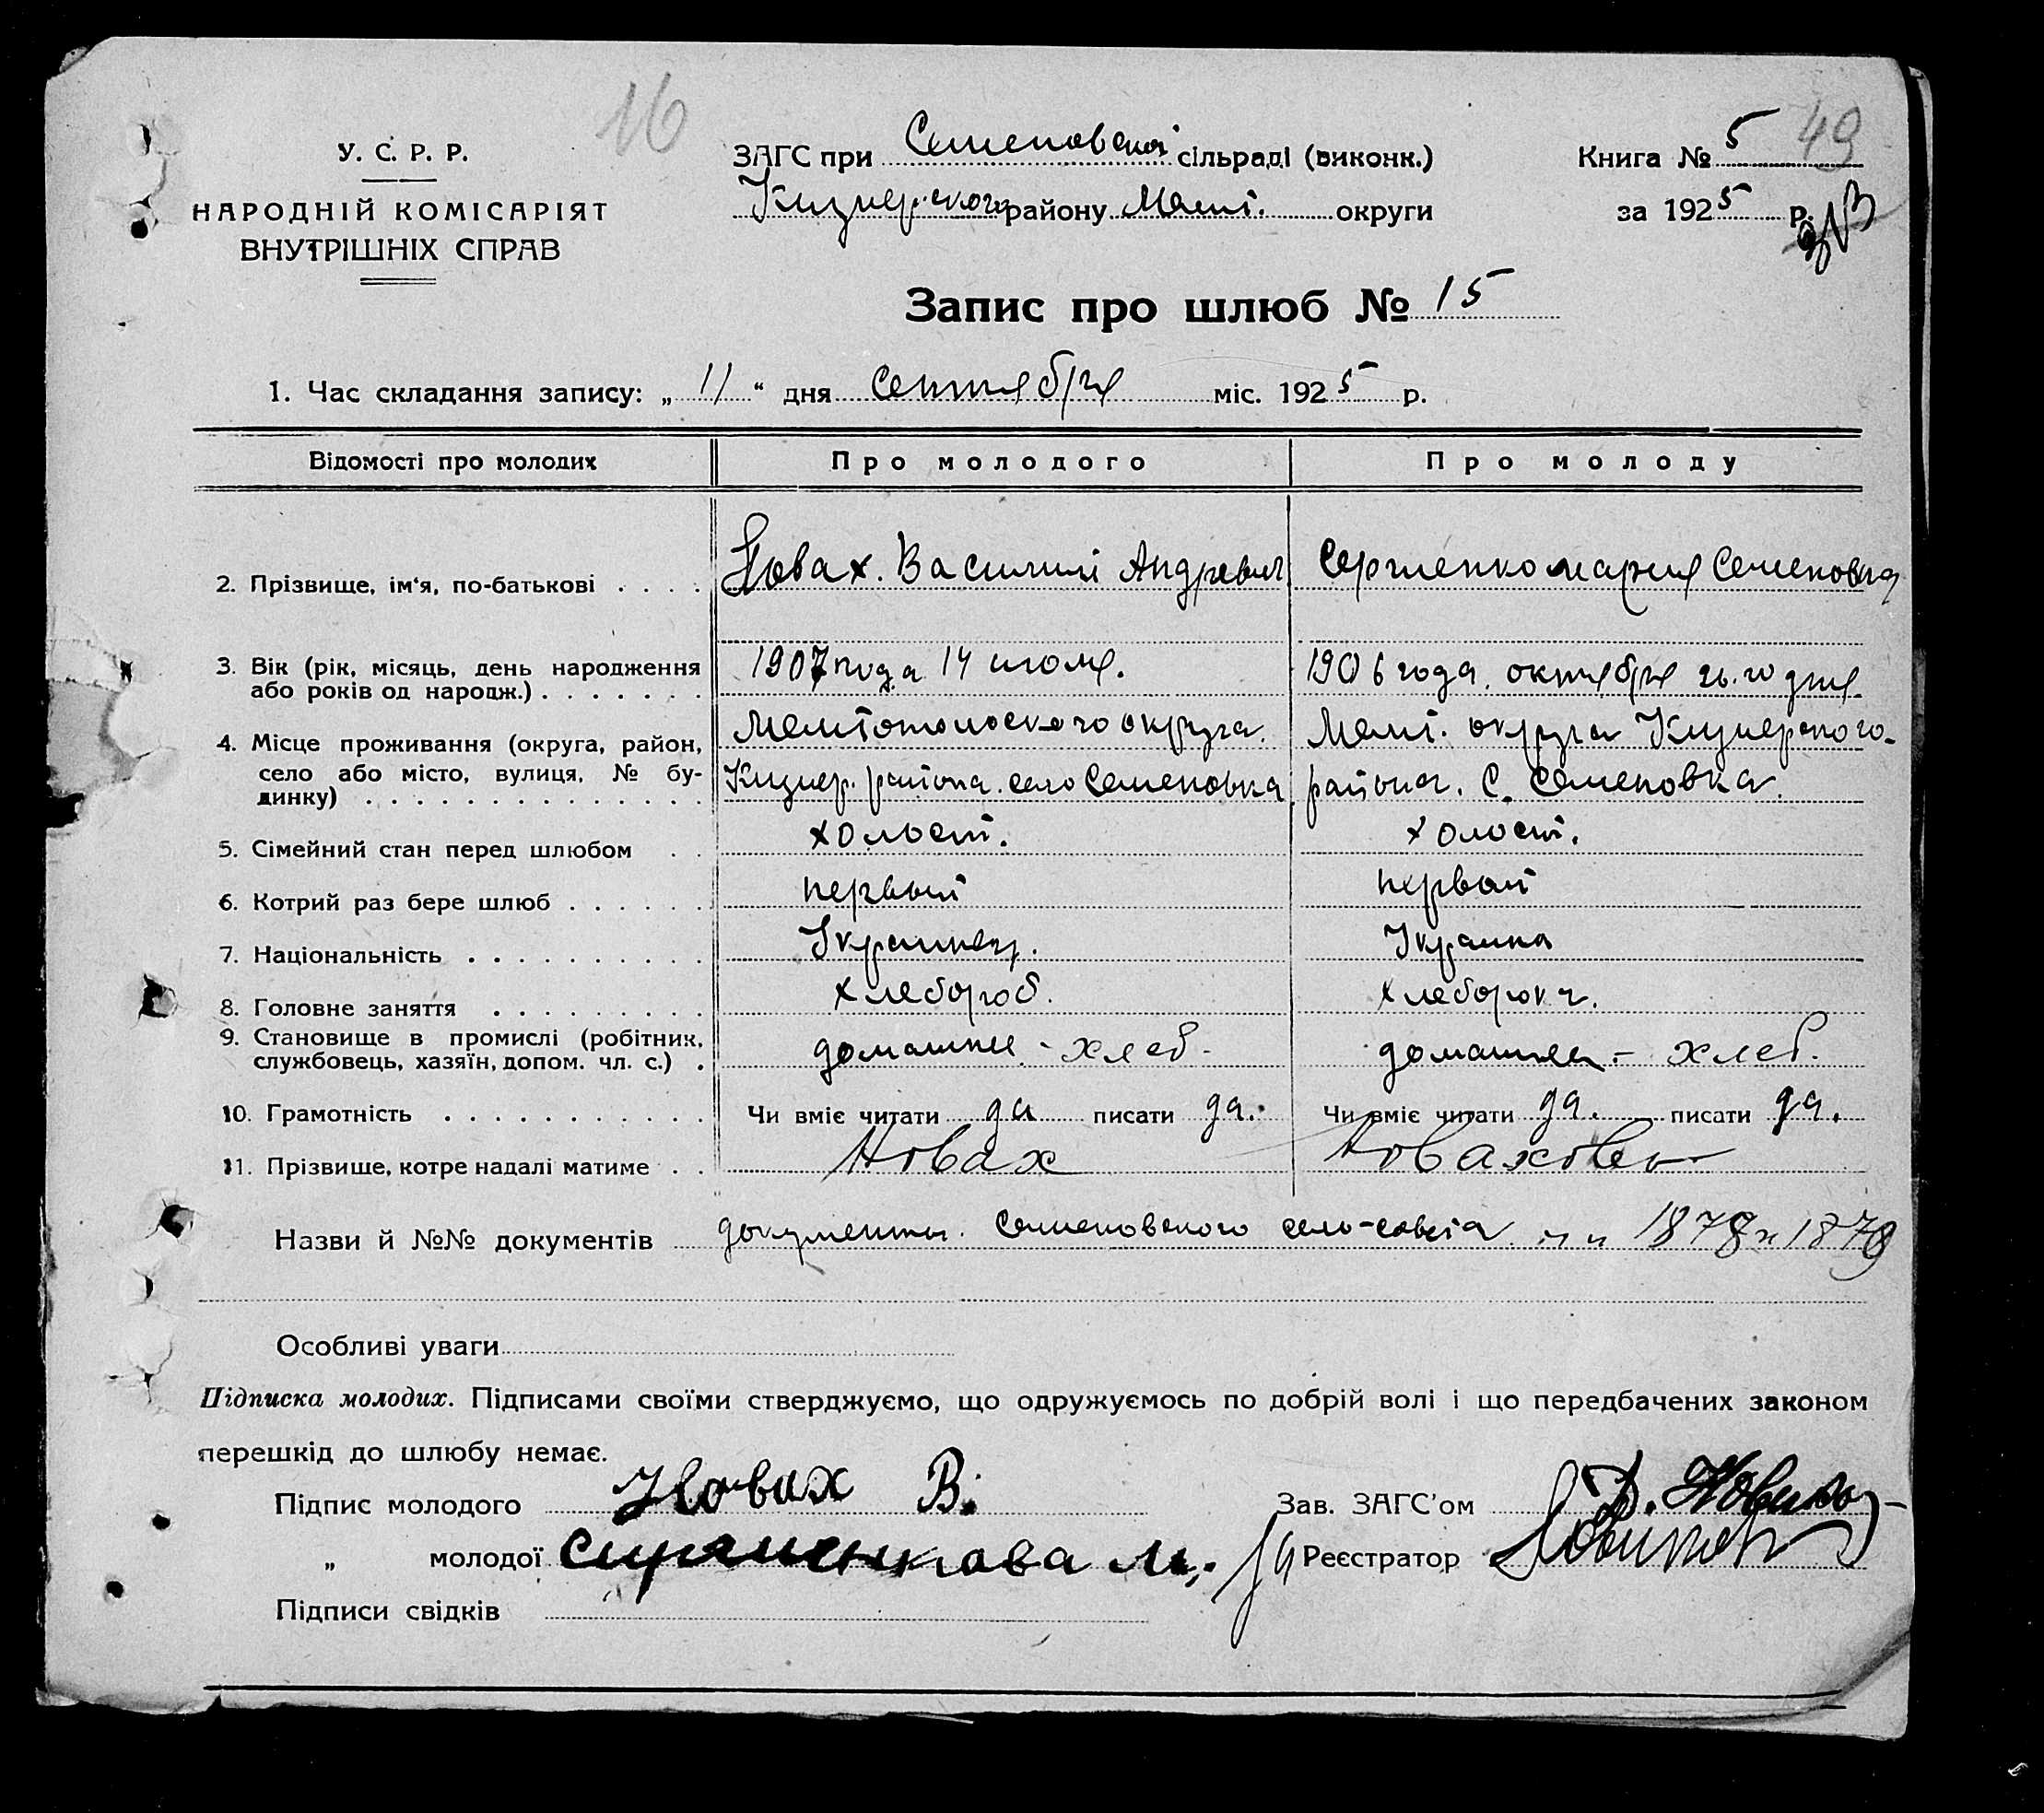 16
У. С. Р. Р.
НАРОДНІЙ КОМІСАРІЯТ
ВНУТРІШНІХ СПРАВ
ЗАГС при Семеновской сільраді (виконк.)
району Мелит. округи
Книга № 5 49
за 1925 р.
Запис про шлюб № 15
1. Час складання запису: „ 11 “ дня сентября міс. 1925 р.
Відомості про молодих Про молодого Про молоду
2. Прізвище, ім‘я, по-батькові . . . . Новах. Василий Андревич Мария Семеновна
3. Вік (рік, місяць, день народження
або років од народж.) . . . . . . . 1907 года 14 июля. 1906 года. октября 26.го дня.
4. Місце проживання (округа, район,
село або місто, вулиця, № бу-
динку) . . . . . . . . . . . . . . Мелитопольского округа. района. село Семеновка Мелит. округа района. С. Семеновка.
5. Сімейний стан перед шлюбом . . холост. холост.
6. Котрий раз бере шлюб . . . . . . первый первый
7. Національність . . . . . . . . . . Украинец. Украинка
8. Головне заняття . . . . . . . . . хлебороб.
9. Становище в промислі (робітник,
службовець, хазяїн, допом. чл. с.) . - хлеб. - хлеб.
10. Грамотність . . . . . . . . . . . Чи вміє читати да писати да. Чи вміє читати да. писати да.
11. Прізвище, котре надалі матиме . . Новах
Назви й №№ документів документы. Семеновского сельсовета 1878 и 1879
Особливі уваги
Підписка молодих. Підписами своїми стверджуємо, що одружуємось по добрій волі і що передбачених законом
перешкід до шлюбу немає.
Підпис молодого Новах В. Зав. ЗАГС'ом
„ молодої М. Реєстратор
Підписи свідків